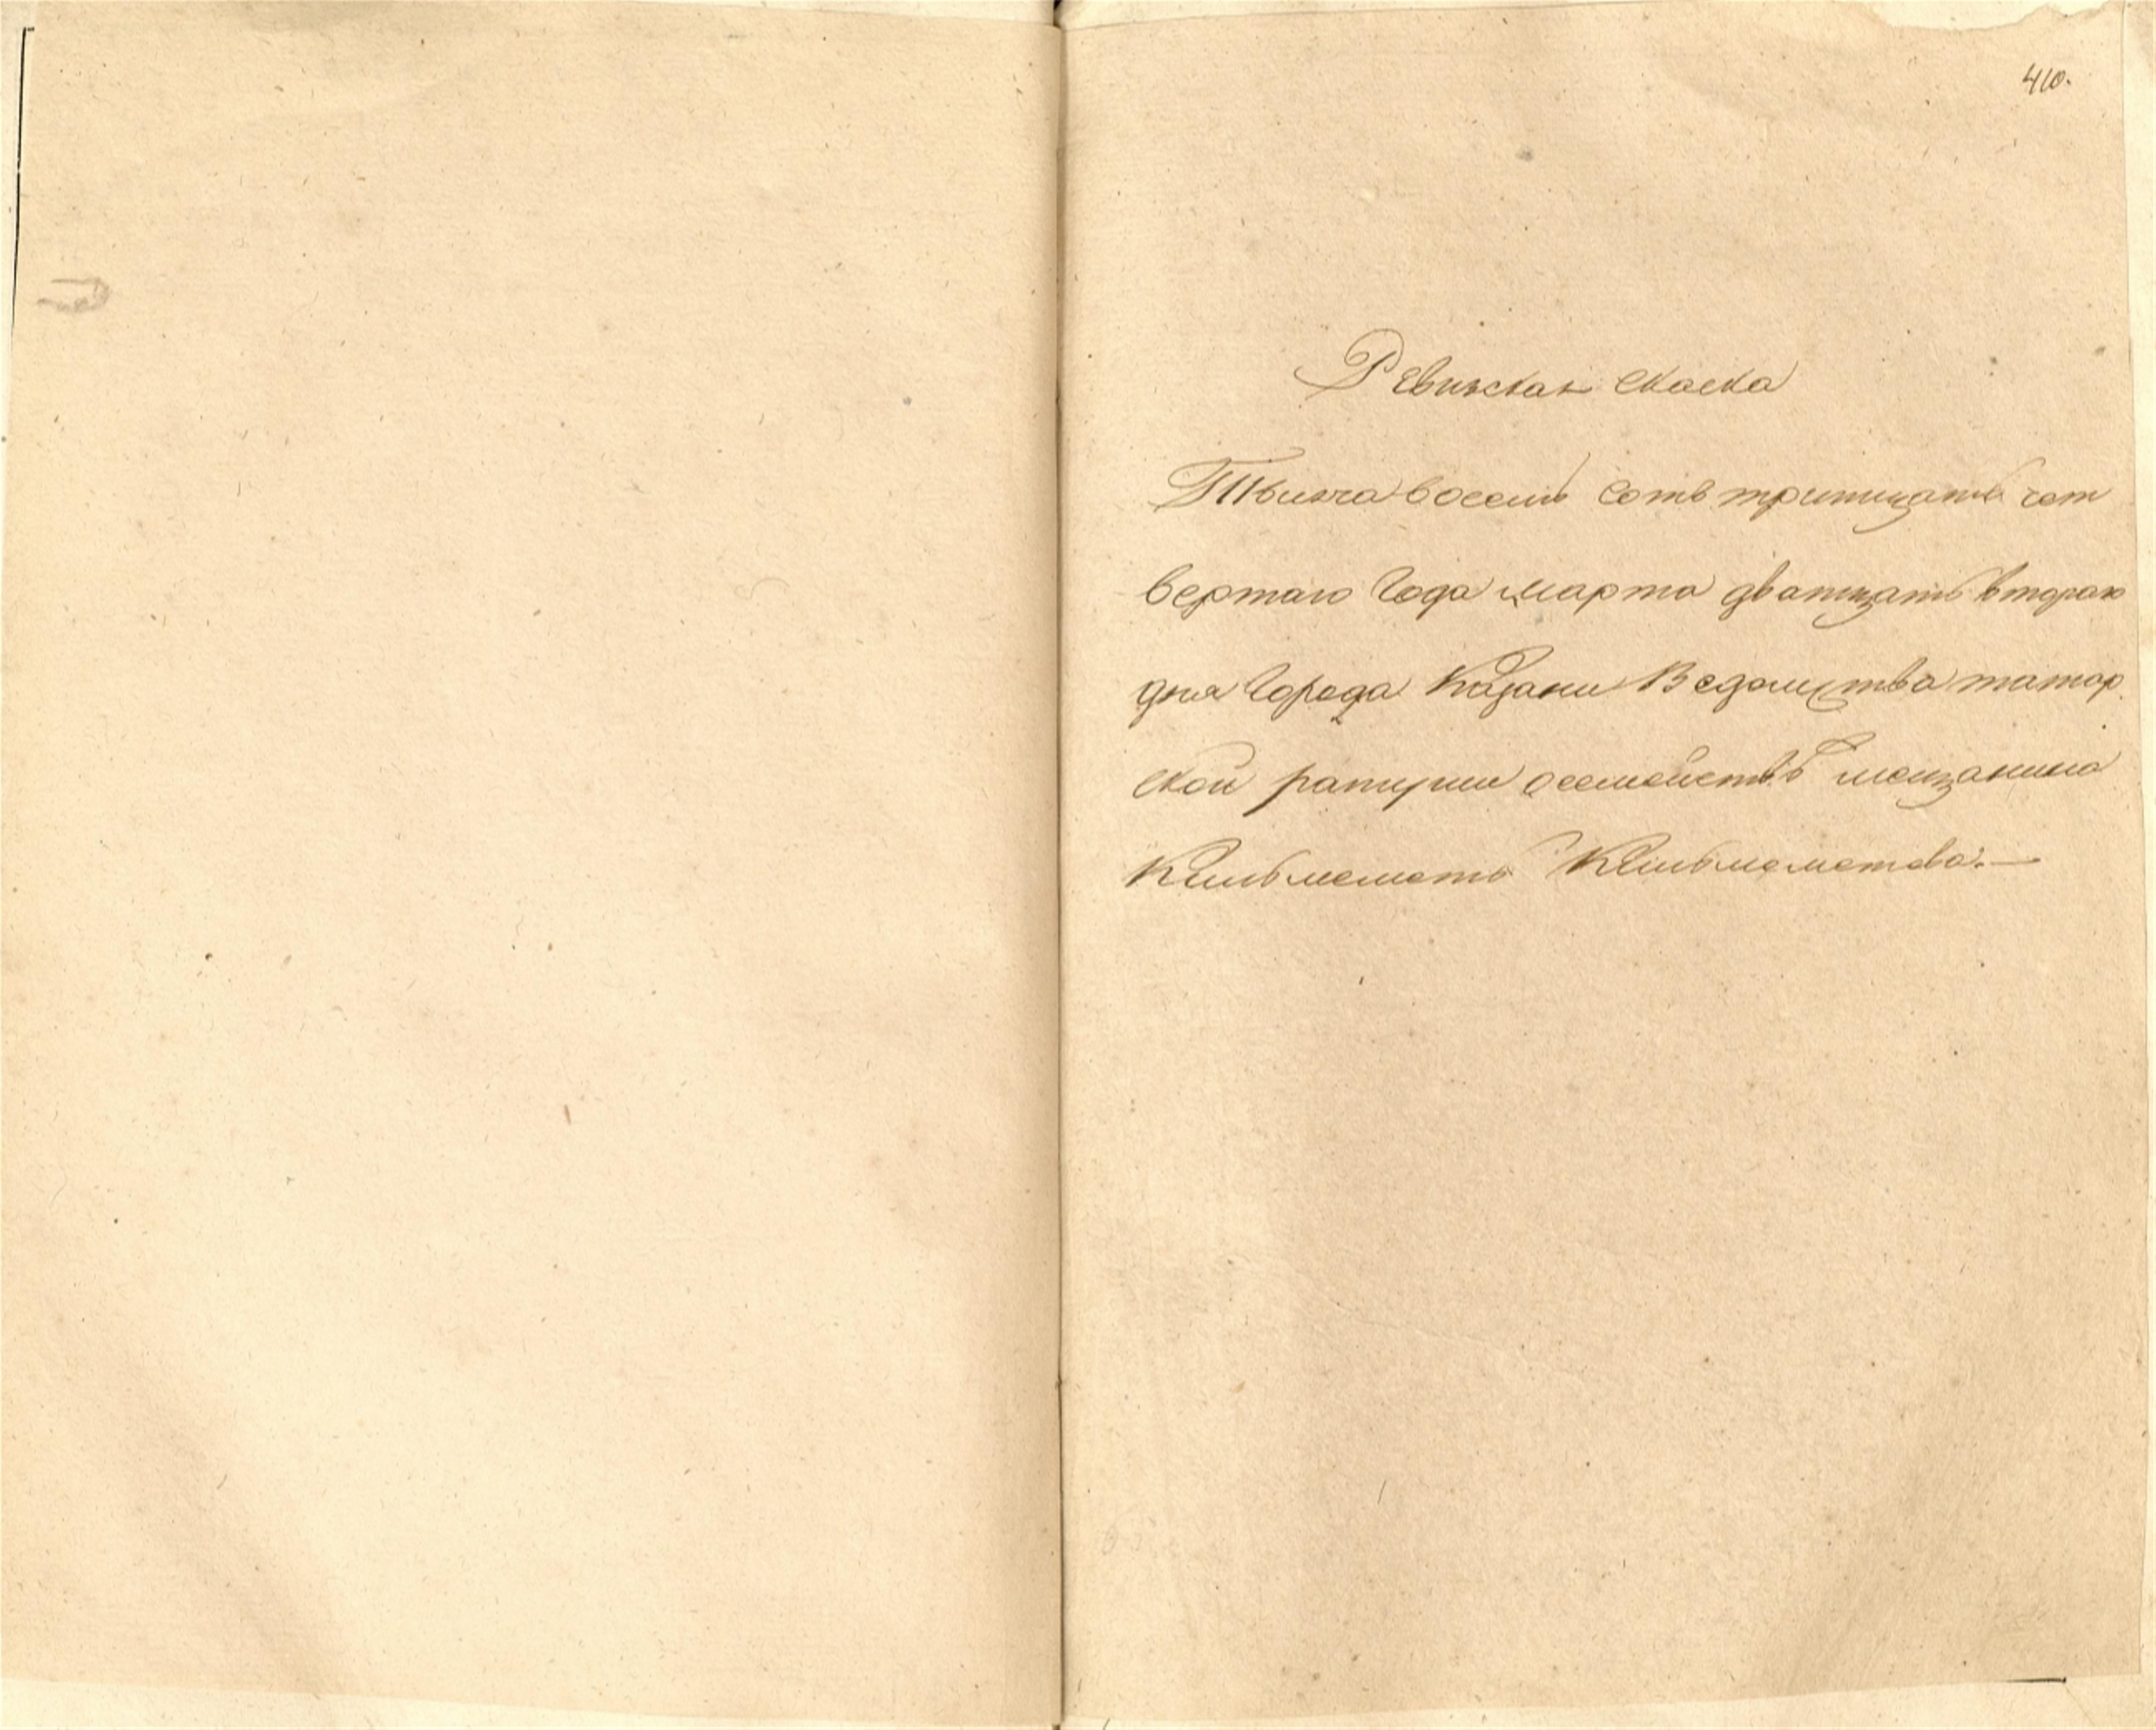 410.
Ревизская Скаска
Тысяча восемь Сотъ тритцать чет
вертаго Года марта дватцать втораго
дня Города Казани Ведомства татар
ской ратуши о семействѣ мещанина
Кильмеметь Кильмеметева.—